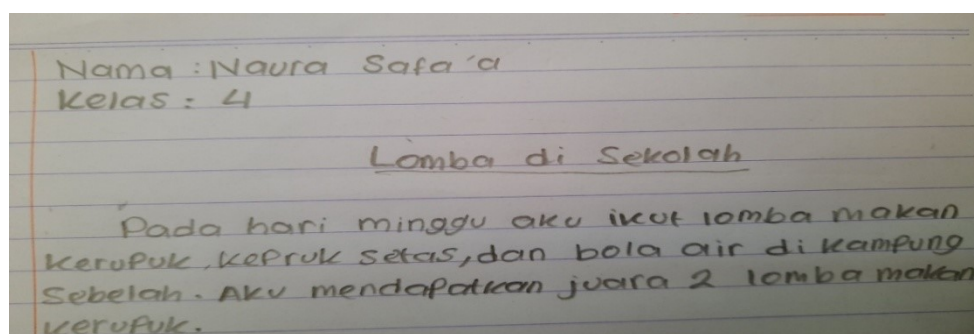 Nama : Naura Safa'a
Kelas : 4
Lomba di Sekolah
Pada hari minggu aku ikut lomba makan
kerupuk, kepruk setas, dan bola air di kampung
Sebelah. Aku mendapatkan juara 2 lomba makan
kerupuk.